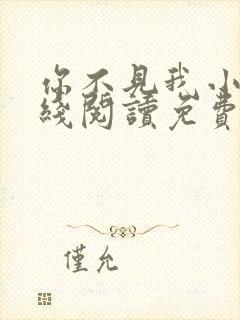 你不見我 小
綫閱讀免費
僅允